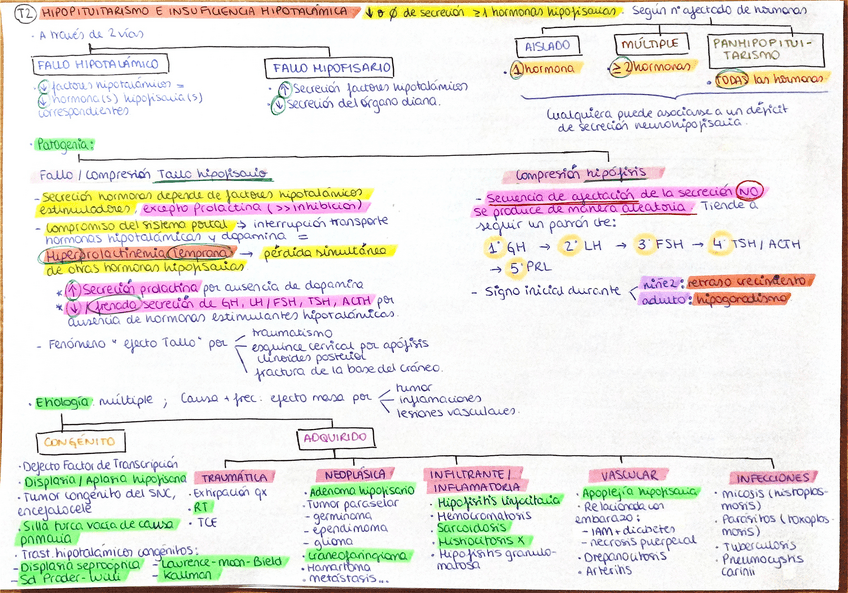 T2 HIPOPITUITARISMO E INSUFICIENCIA HIPOTALÁMICA / ↓ o ∅ de secreción ≥1 hormonas hipofisarias. Según nº afectado de hormonas
· A través de 2 vías
FALLO HIPOTALÁMICO
↓ factores hipotalámicos =
↓ hormona(s) hipofisaria(s)
correspondientes
FALLO HIPOFISARIO
· ↑ Secreción factores hipotalámicos
· ↓ Secreción del órgano diana.
AISLADO
· 1 hormona
MÚLTIPLE
· ≥2 hormonas
PANHIPOPITUI-
TARISMO
· TODAS las hormonas
Cualquiera puede asociarse a un déficit
de secreción neurohipofisaria.
· Patogenia:
Fallo / Compresión Tallo hipofisario
- Secreción hormonas depende de factores hipotalámicos
estimuladores, excepto prolactina (>> inhibición)
- Compromiso del sistema portal → interrupción transporte
hormonas hipotalámicas y dopamina =
Hiperprolactinemia temprana → pérdida simultánea
de otras hormonas hipofisarias
* ↑ Secreción prolactina por ausencia de dopamina
* ↓ / frenada secreción de GH, LH/FSH, TSH, ACTH por
ausencia de hormonas estimulantes hipotalámicas.
- Fenómeno "efecto Tallo" por
traumatismo
esguince cervical por apófisis
clinoides posterior
fractura de la base del cráneo.
Compresión hipófisis
- Secuencia de afectación de la secreción NO
se produce de manera aleatoria. Tiende a
seguir un patrón de:
1º GH → 2º LH → 3º FSH → 4º TSH / ACTH
→ 5º PRL
- Signo inicial durante
niñez: retraso crecimiento
adulto: hipogonadismo
· Etiología: múltiple ; Causa + frec: efecto masa por
tumor
inflamaciones
lesiones vasculares.
CONGÉNITO
· Defecto Factor de Transcripción
· Displasia / Aplasia hipofisaria
· Tumor congénito del SNC,
encefalocele
· Silla turca vacía de causa
primaria
· Trast. hipotalámicos congénitos:
- Displasia septoóptica
- Sd Prader-Willi
- Laurence-moon-Bield
- Kallman
ADQUIRIDO
TRAUMÁTICA
· Extirpación qx
· RT
· TCE
NEOPLÁSICA
· Adenoma hipofisario
· Tumor paraselar
- germinoma
- ependimoma
- glioma
· Craneofaringioma
· Hamartoma
· metástasis...
INFILTRANTE /
INFLAMATORIA
· Hipofisitis linfocitaria
· Hemocromatosis
· Sarcoidosis
· Histiocitosis X
· Hipofisitis granulo-
matosa
VASCULAR
· Apoplejía hipofisaria
· Relacionada con
embarazo:
- IAM + diabetes
- necrosis puerperal
· Drepanocitosis
· Arteritis
INFECCIONES
· micosis (histoplas-
mosis)
· Parásitos (toxoplas-
mosis)
· Tuberculosis
· Pneumocystis
carinii